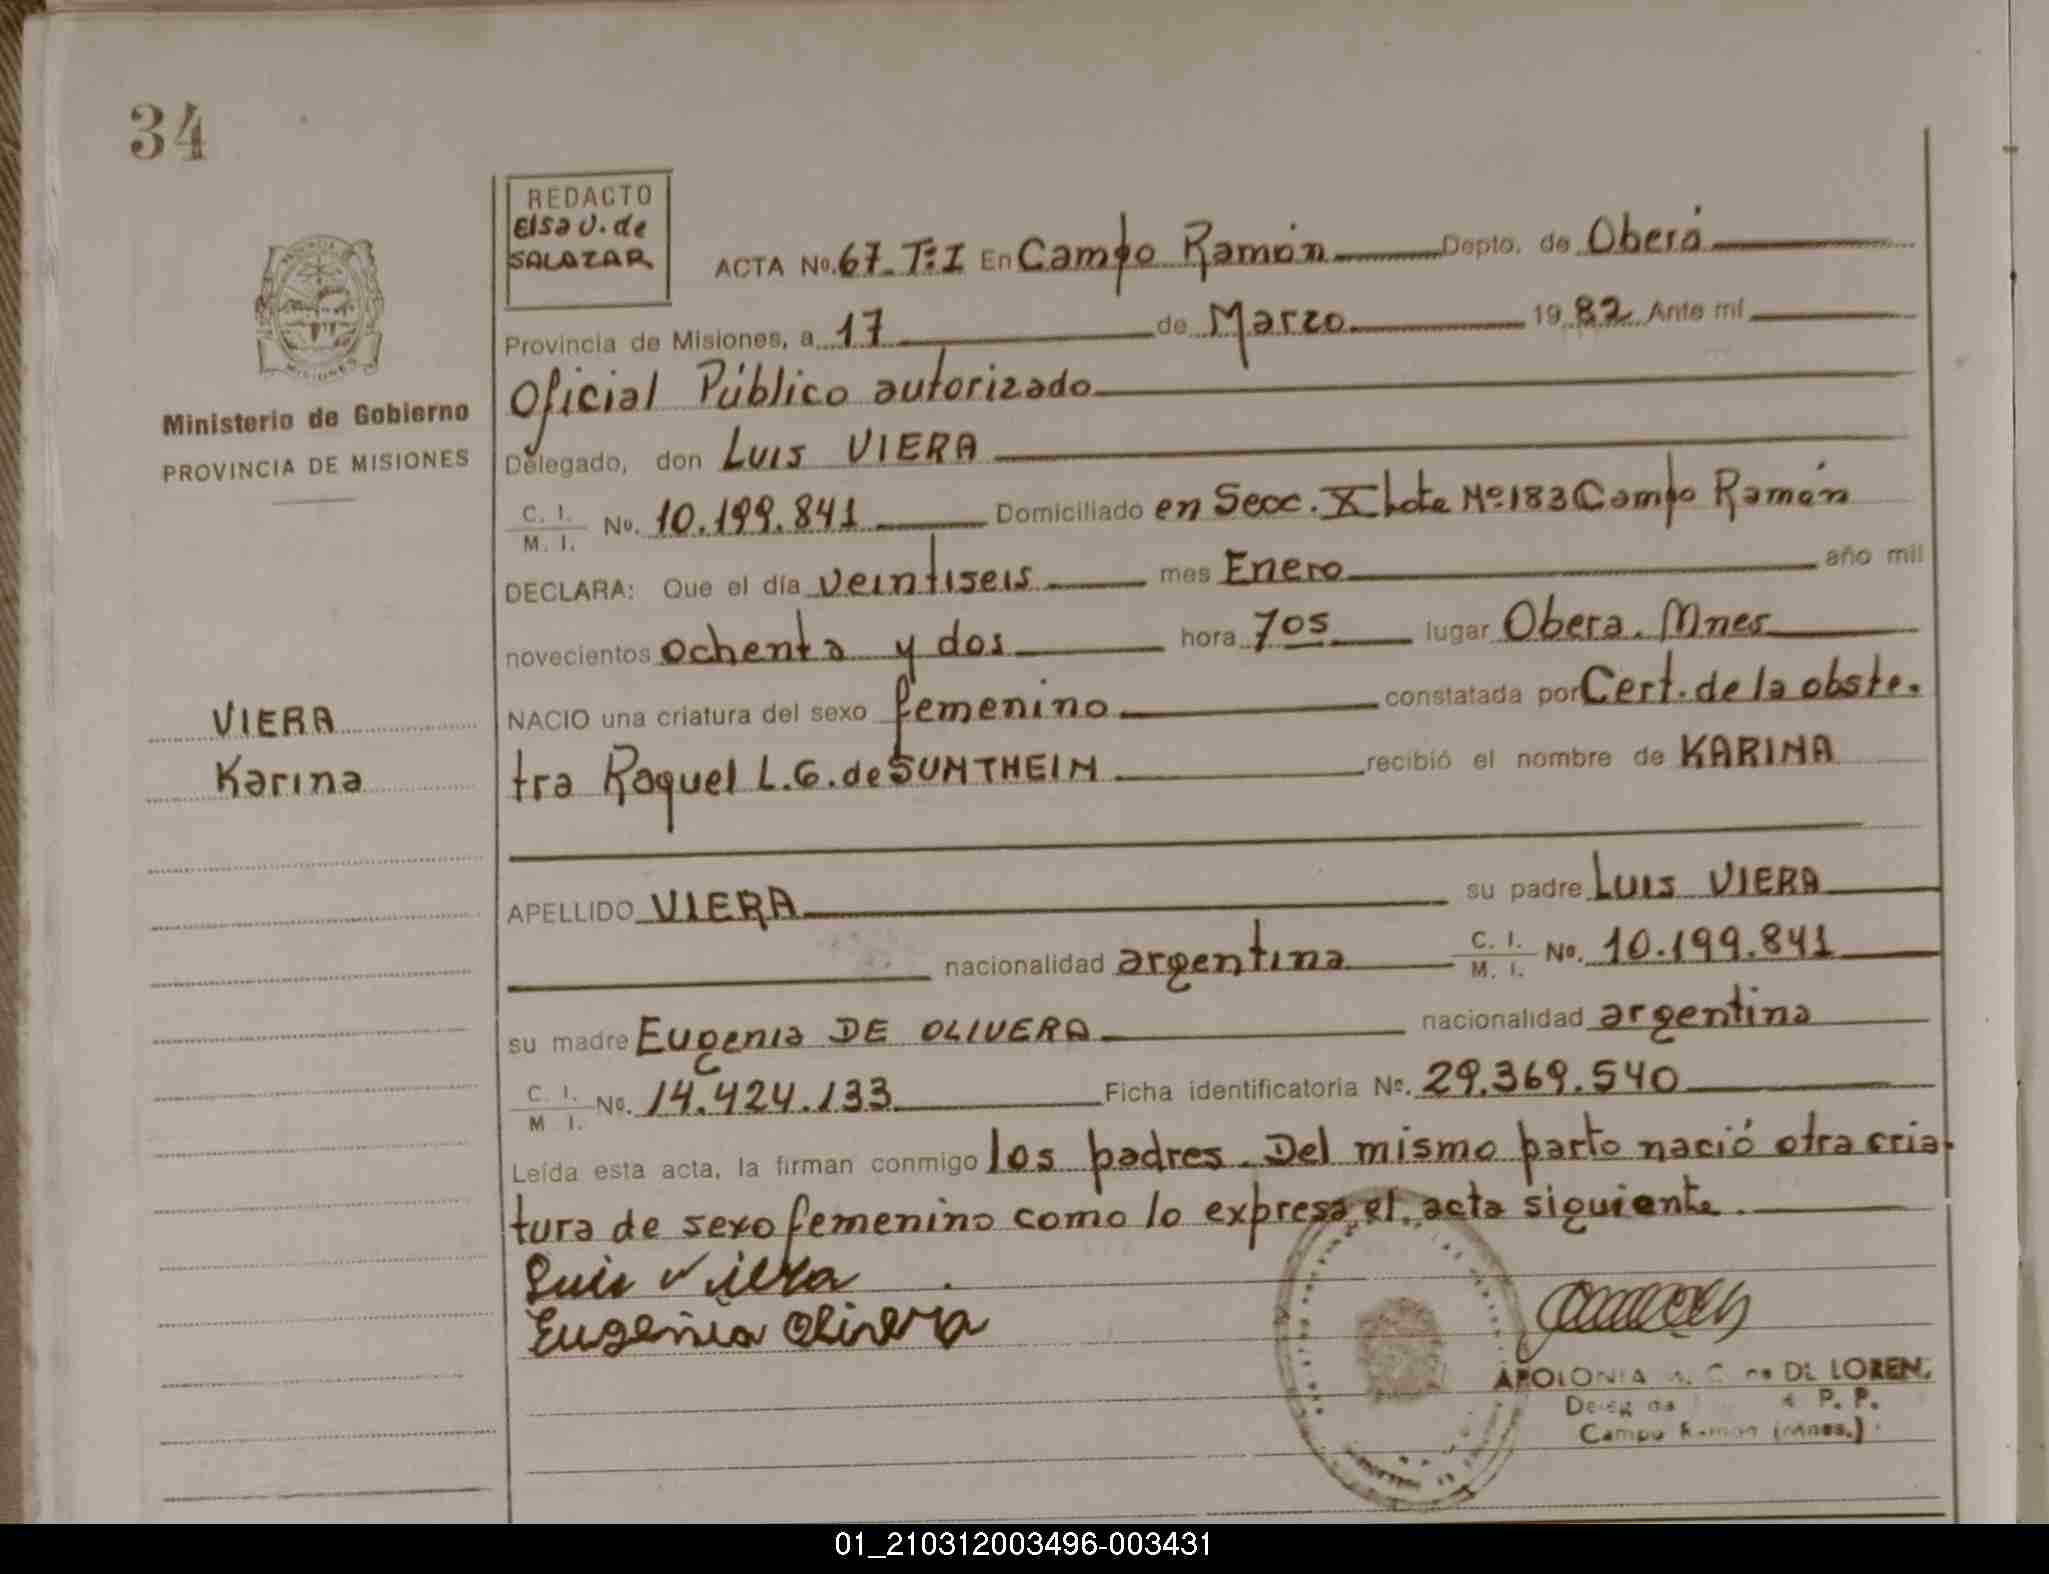 34
REDACTO
Elsa V. de
SALAZAR
ACTA No. 67. Tº I En Campo Ramón Depto. de Oberá
Provincia de Misiones, a 17 de Marzo 1982 Ante mí
Oficial Público autorizado
Ministerio de Gobierno
PROVINCIA DE MISIONES
Delegado, don Luis VIERA
C. I.
M. I. No. 10.199.841 Domiciliado en Secc. X Lote Nº 183 Campo Ramón
DECLARA: Que el día veintiseis mes Enero año mil
novecientos ochenta y dos hora 7 05 lugar Obera. Mnes
VIERA
Karina
NACIO una criatura del sexo femenino constatada por Cert. de la obste.
tra Raquel L. G. de SUNTHEIM recibió el nombre de KARINA
APELLIDO VIERA su padre Luis VIERA
nacionalidad argentina C. I. M. I. No. 10.199.841
su madre Eugenia DE OLIVERA nacionalidad argentina
C. I.
M I. No. 14.424.133 Ficha identificatoria No. 29.369.540
Leída esta acta, la firman conmigo los padres. Del mismo parto nació otra cria-
tura de sexo femenino como lo expresa el acta siguiente.
Luis Viera
Eugenia Olivera
APOLONIA DE LOREN.
P. P.
Campo Ramon (Mnes.)
01_210312003496-003431